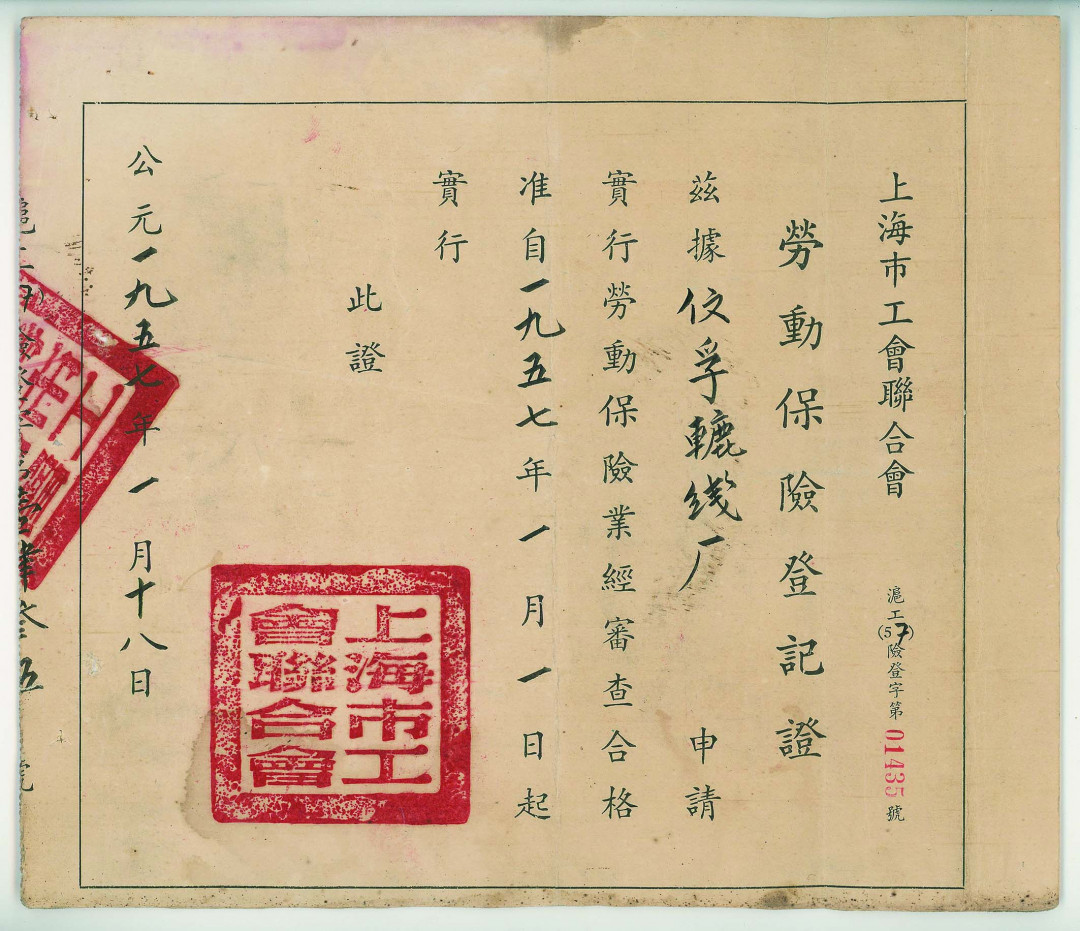 上海市工會聯合會
滬工(57)險登字第01435號
勞動保險登記證
茲據伩孚轆綫厂申請
實行勞動保險業經審查合格
准自一九五七年一月一日起
實行
此證
公元一九五七年一月十八日
上海市工
會聯合會